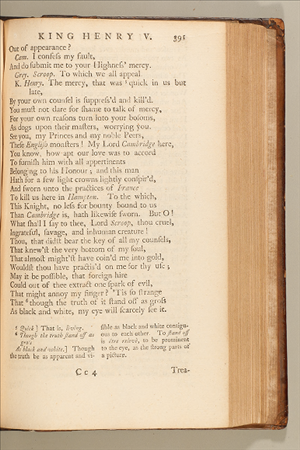 KING HENRY V. 391
Out of appearance?
Cam. I confess my fault,
And do submit me to your Highness' mercy.
Grey. Scroop. To which we all appeal
K. Henry. The mercy, that was ¹ quick in us but
late,
By your own counsel is suppress'd and kill'd.
You must not dare for shame to talk of mercy,
For your own reasons turn into your bosoms,
As dogs upon their masters, worrying you.
See you, my Princes and my noble Peers,
These English monsters! My Lord Cambridge here,
You know, how apt our love was to accord
To furnish him with all appertinents
Belonging to his Honour; and this man
Hath for a few light crowns lightly conspir'd,
And sworn unto the practices of France
To kill us here in Hampton. To the which,
This Knight, no less for bounty bound to us
Than Cambridge is, hath likewise sworn. But O!
What shall I say to thee, Lord Scroop, thou cruel,
Ingrateful, savage, and inhuman creature!
Thou, that didst bear the key of all my counsels,
That knew'st the very bottom of my soul,
That almost might'st have coin'd me into gold,
Wouldst thou have practis'd on me for thy use;
May it be possible, that foreign hire
Could out of thee extract one spark of evil,
That might annoy my finger? 'Tis so strange
That ² though the truth of it stand off as gross
As black and white, my eye will scarcely see it.
¹ Quick] That is, living.
² Though the truth stand off as
gross
As black and white,] Though
the truth be as apparent and vi-
sible as black and white contigu-
ous to each other. To stand off
is être relevé, to be prominent
to the eye, as the strong parts of
a picture.
Cc 4 Trea-